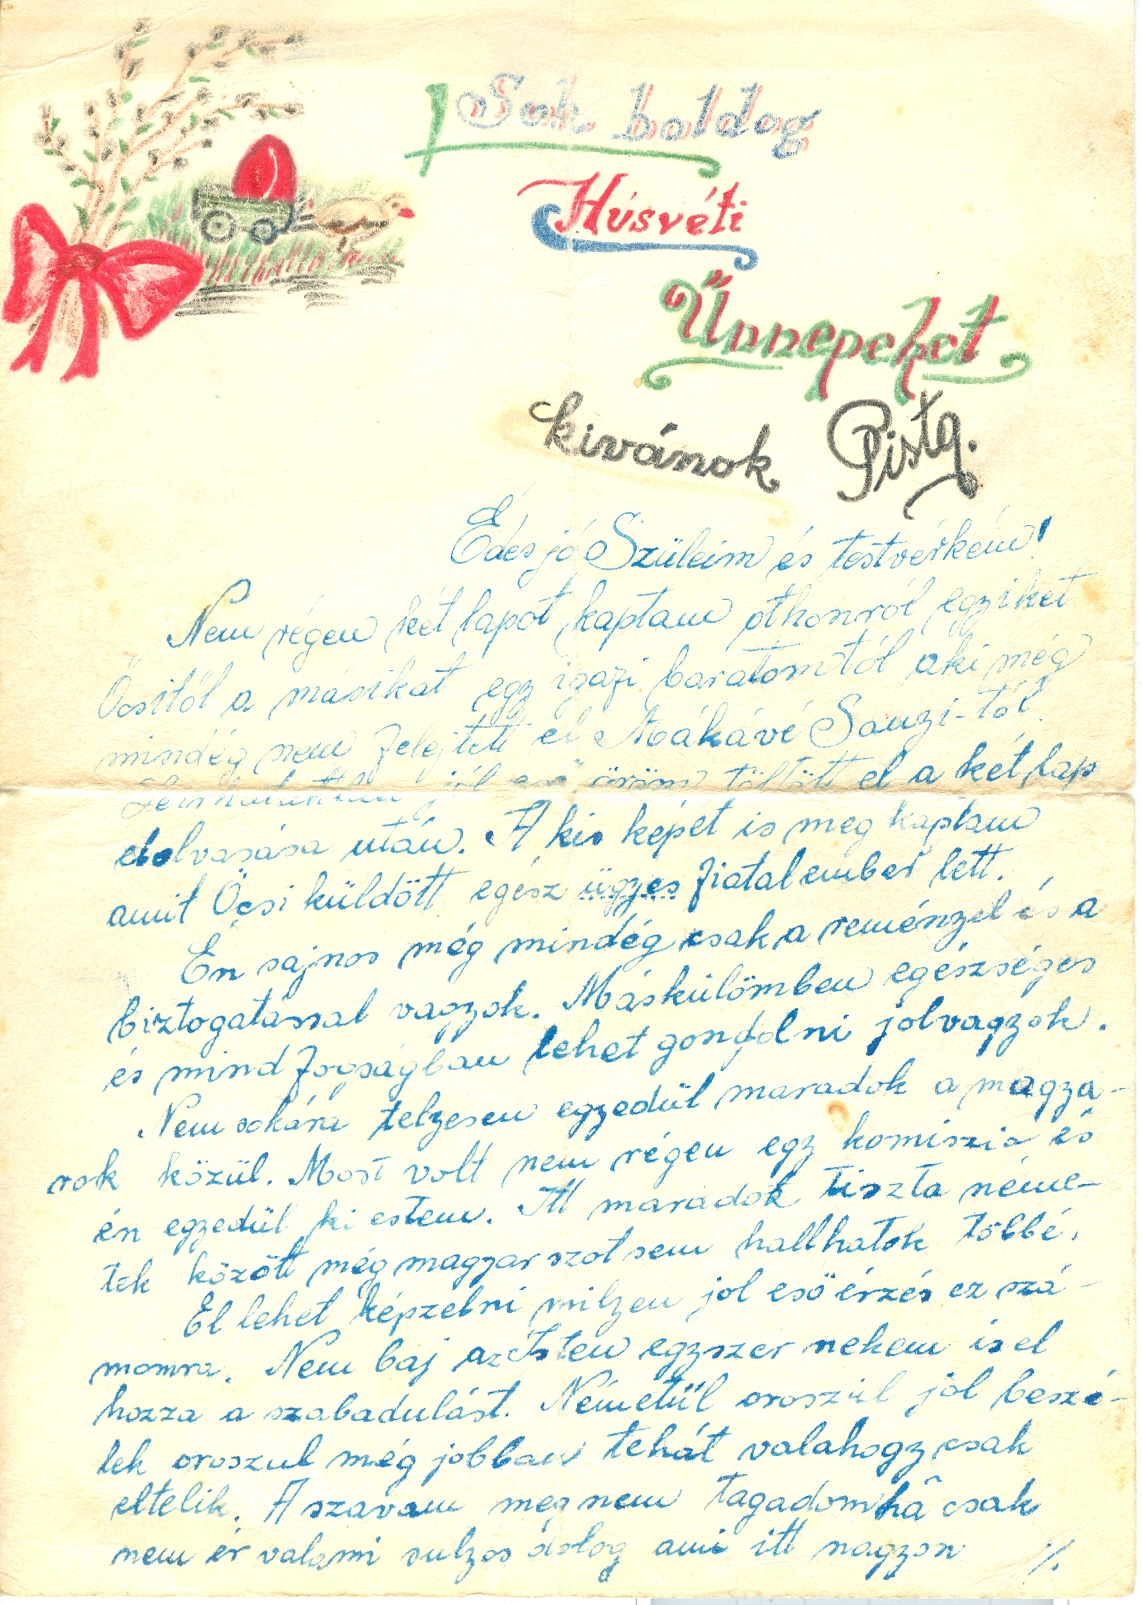 Sok boldog
Húsvéti
Ünnepeket
kivánok Pista.
Édes jó Szüleim és testvérkém!
Nem régen két lapot kaptam othonról egyiket
Öcsitöl a másikat egy igazi baratomtól aki még
mindég nem felejtett el Mákávé Sanyi-tól.
jól eső öröm töltött el a két lap
elolvasása után. A kis képét is meg kaptam
amit Öcsi küldött egész ügyes fiatalember lett.
Én sajnos még mindég csak a reménnyel és a
biztogatással vagyok. Máskülömben egészséges
és mind fogságban lehet gondolni jolvagyok.
Nem sokára teljesen egyedül maradok a magya-
rok közül. Most volt nem régen egy komiszia és
én egyedül ki estem. Itt maradok tiszta néme-
tek között még magyar szot sem hallhatok többé.
El lehet képzelni milyen jol eső érzés ez szá-
momra. Nem baj az Isten egyszer nekem is el
hozza a szabadulást. Németül oroszul jol beszé-
lek oroszul még jobban tehát valahogy csak
eltelik. A szavam meg nem tagadom ha csak
nem ér valami sulyos dolog ami itt nagyon
%.